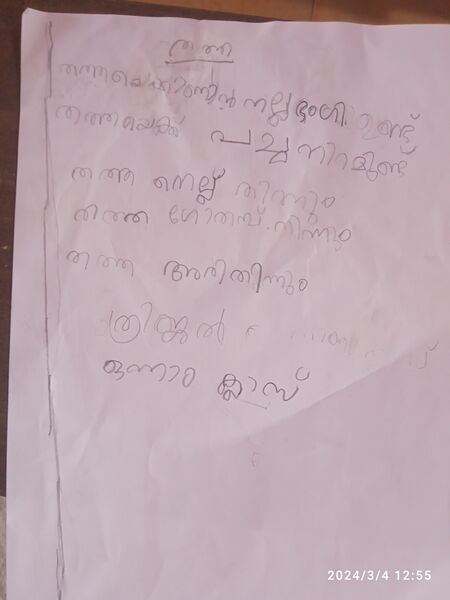 തത്ത
തത്തയെക്കാണാൻ നല്ല ഭംഗി ഉണ്ട്
തത്തയെക്ക് പച്ച നിറമുണ്ട്
തത്ത നെല്ല് തിന്നും
തത്ത ഗോതമ്പ് തിന്നും
തത്ത അരിതിന്നും
ഒന്നാം ക്ലാസ്
2024/3/4 12:55